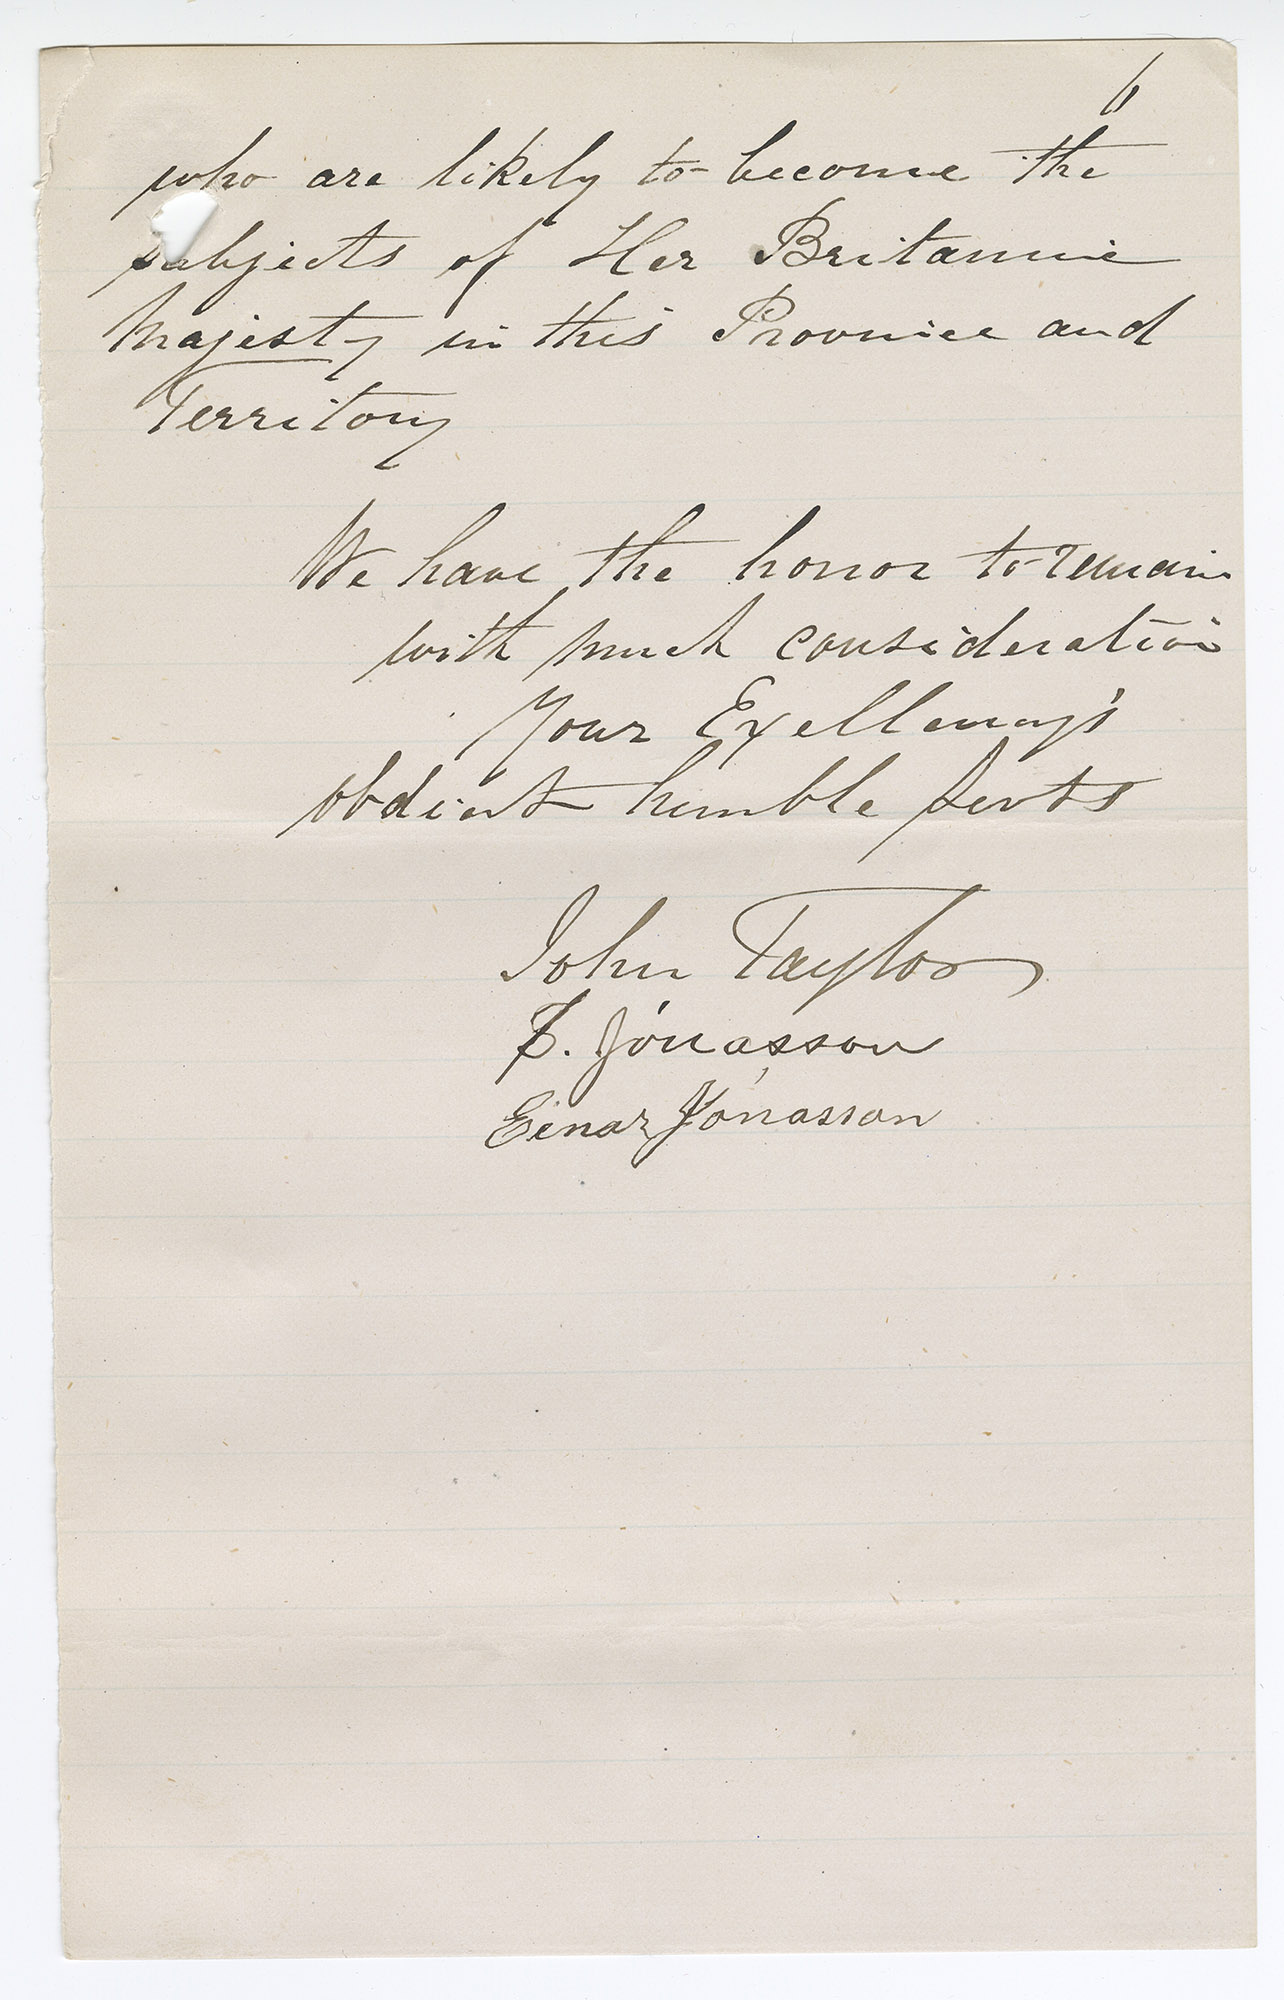 6
who are likely to become the
subjects of Her Britannic
Majesty in this Province and
Territory
We have the honor to remain
with much consideration
Your Exellency's
obdient humble servts
John Taylor
F. Jónasson
Einar Jónasson